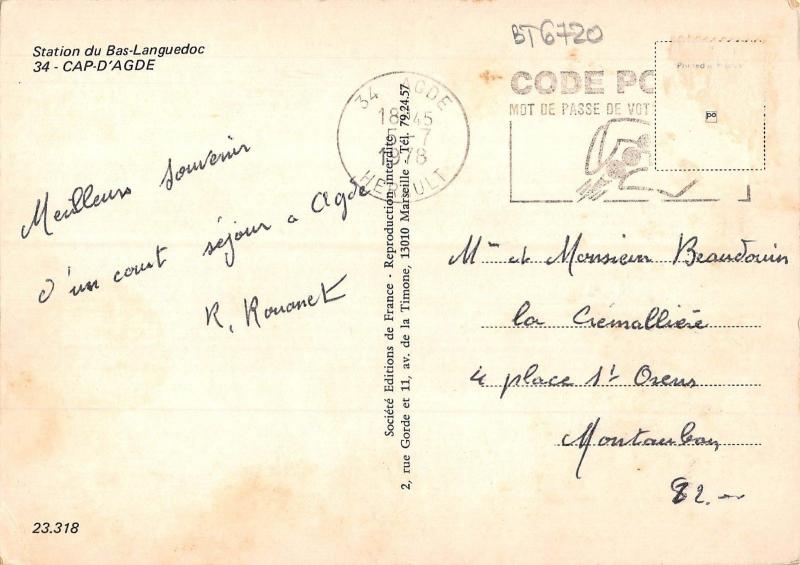 Station du Bas-Languedoc
34 - CAP-D'AGDE
BT6720
34 AGDE
18 45
5-7
1978
HERAULT
CODE PO
MOT DE PASSE DE VOT
po
Meilleurs souvenir
d'un court séjour a Agde
R. Rouanet
Société Editions de France - Reproduction interdite
2, rue Gorde et 11, av. de la Timone, 13010 Marseille - Tél. 79.24.57
Mme et Monsieur Beaudouin
la Crémallière
4 place St Orens
Montauban
82.
23.318